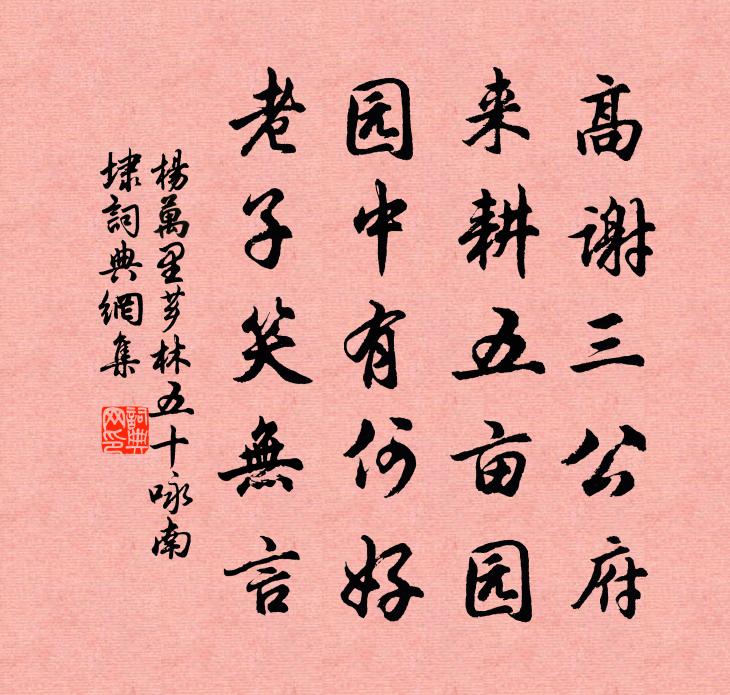 高谢三公府
来耕五亩园
园中有何好
老子笑無言
楊萬里芗林五十咏南
埭詞典網集
詞典
网印